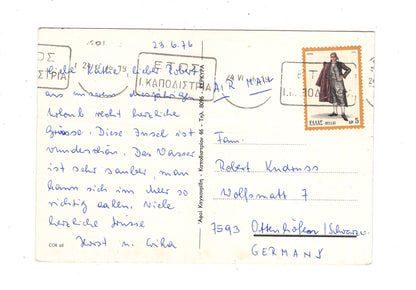 23.6.76
ΕΤΟΣ
Ι. ΚΑΠΟΔΙΣΤΡΙΑ
Liebe Käthe, lieber Robert
aus unserem diesjährigen
Urlaub recht herzliche
Grüsse. Diese Insel ist
wunderschön. Das Wasser
ist sehr sauber, man
kann sich im Meer so
richtig aalen. Viele
herzliche Grüsse
Horst u. Erika
COR 60
ΚΕΡΚΥΡΑ
AIR MAIL
ΕΛΛΑΣ HELLAS ΔΡ 5
Fam.
Robert Knauss
Wolfsmatt 7
7593 Ottenhöfen/Schwarzw.
GERMANY